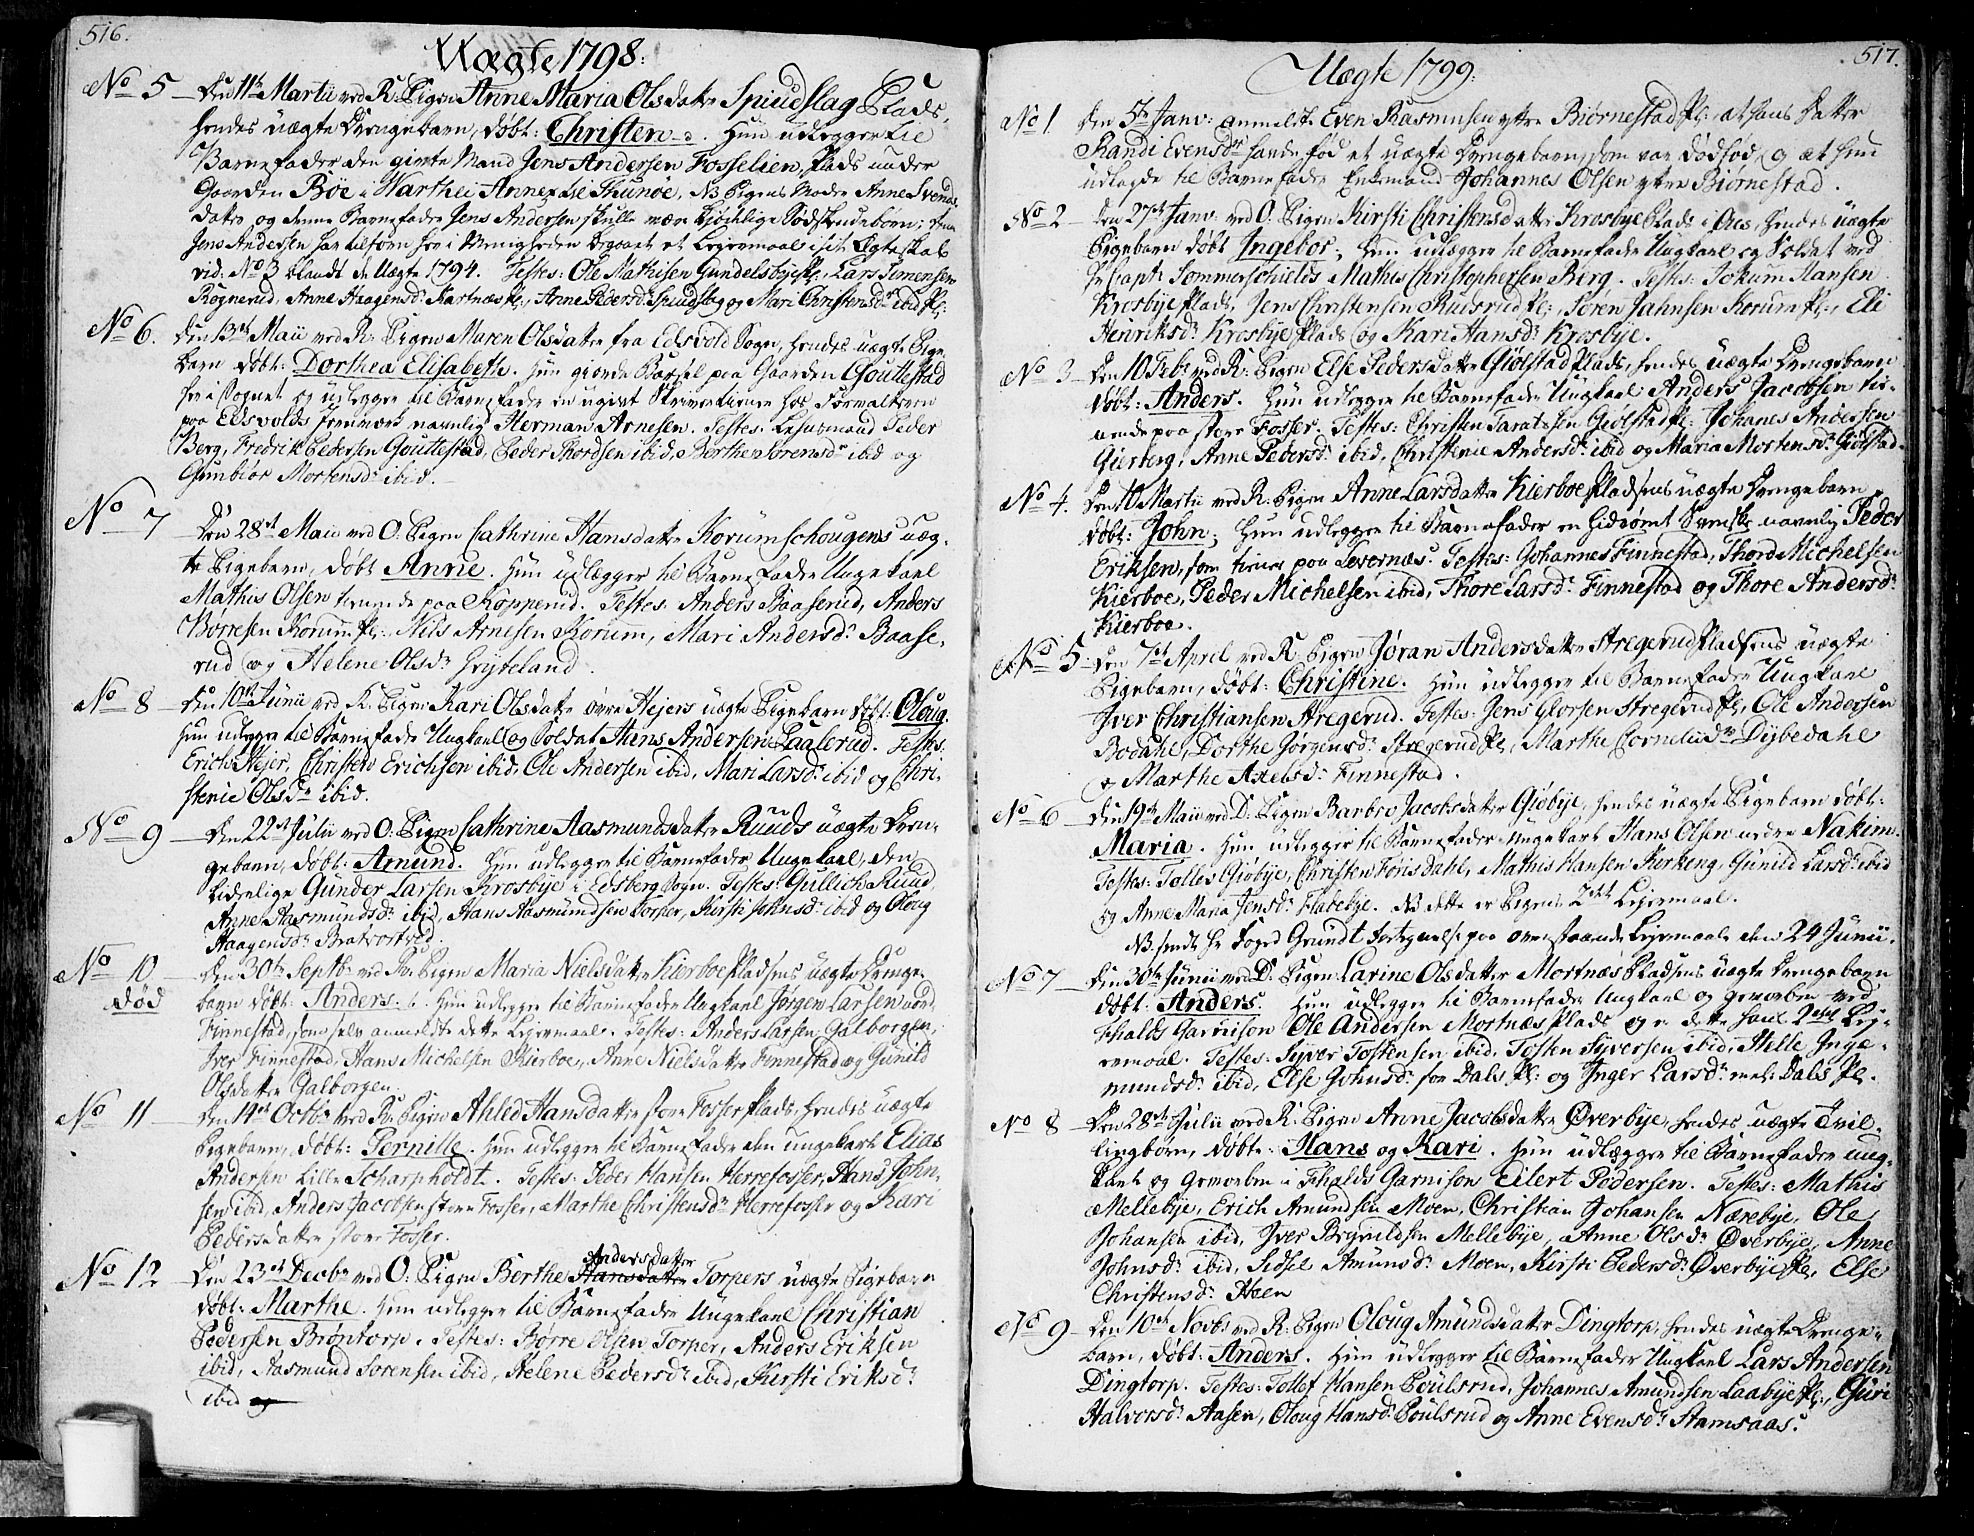 516.
Uægte 1798:
No 5 Den 11te Martii ved R: Pigen Anne Maria Olsdatter Spiudslag Plads,
hendes uægte Drengebarn, døbt: Christen. Hun udlegger til
Barnefader den givte Mand Jens Andersen Fosselien, Plads under
Gaarden Bøe i Warthei Annex til Thunøe. NB Pigens Moder Anne Svends
datter og denne Barnefader Jens Andersen skulle være Kiødelige Sødskendebørn; denne
Jens Andersen har tilforn her i Menigheden begaaet et Leiermaal i sit Ægteskab
vid: No 3 blandt de Uægte 1794. Testes: Ole Mathisen Gundelsbyepl:, Lars Simensen
Rognerud, Anne Haagensdr Kartnæs Pl:, Anne Pedersdr Spiudslag og Mari Christensdr ibid Pl:
No 6. Den 13de Maii ved R: Pigen Maren Olsdatter fra Edsvold Sogn, hendes uægte Pige-
barn døbt: Dorthea Elisabeth. Hun giorde Barsel paa Gaarden Gouttestad
her i Sognet og udlegger til Barnefader en ugivt Skrivertiener hos Forvalteren
paa Edsvolds Jernværk navnlig Herman Arnesen. Testes: Lehnsmand Peder
Berg, Fredrik Pedersen Gouttestad, Peder Thordsen ibid, Berthe Sørensdr ibid og
Gunbiør Mortensdr ibid.
No 7 Den 28de Maii ved O: Pigen Cathrine Hansdatter Korumschougens uæg-
te Pigebarn, døbt Anne. Hun udlægger til Barnefader Ungekarl
Mathis Olsen tienende paa Kopperud. Testes: Anders Baaserud, Anders
Borresen Korum Pl:, Nils Arnesen Korum, Mari Andersdr Baase-
rud og Helene Olsdr Gryteland.
No 8 Den 10de Junii ved R. Pigen Kari Olsdatter øvre Hejers uægte Pigebarn døbt: Oloug.
Hun udlegger til Barnefader Ungkarl og Soldat Hans Andersen Paalerud. Testes:
Erich Hejer, Christen Erichsen ibid, Ole Andersen ibid, Mari Larsdr ibid og Chri-
stenie Olsdr ibid.
No 9 Den 22de Julii ved O: Pigen Cathrine Aasmundsdatter Ruuds uægte Dren-
gebarn, døbt: Amund. Hun udlegger til Barnefader Ungekarl, den
Lidelige Gunder Larsen Krosbye i Edsberg Sogn. Testes: Gullich Ruud,
Anne Aasmundsdr ibid, Hans Aasmundsen Torper, Kirsti Johnsdr ibid og Oloug
Haagensdr Bratvortved.
No 10 Den 30te Septbr ved R: Pigen Maria Nielsdatter Kierboe Pladsens uægte Drenge-
død
barn døbt: Anders. Hun udlegger til Barnefader Ungkarl Jørgen Larsen nord-
Finnestad, som selv anmeldte dette Leiermaal. Testes: Anders Larsen Galborgen,
Iver Finnestad, Hans Michelsen Kierboe, Anne Nielsdatter Finnestad og Gunild
Olsdatter Galborgen.
No 11 Den 14de Octbr ved R: Pigen Ahled Hansdatter store Fosser plads, hendes uægte
Pigebarn, døbt: Pernille. Hun udlegger til Barnefader den ungekarl Elias
Andersen Lille Scharpholdt. Testes: Peder Hansen Herrefosser, Hans John-
sen ibid, Anders Jacobsen store Fosser, Marthe Christensdr Herrefosser og Kari
Pedersdatter store Fosser.
No 12 Den 23de Decbr ved O: Pigen Berthe Hansdatter Andersdatter Torpers uægte Pigebarn
døbt: Marthe. Hun udlegger til Barnefader Ungekarl Christian
Pedersen Brøntorp. Testes: Børre Olsen Torper, Anders Eriksen
ibid, Aasmund Sørensen ibid, Helene Pedersdr ibid, Kirsti Eriksdr
ibid og
517.
Uægte 1799:
No 1 Den 5te Janv: anmeldte Even Rasmusen yttre Biørnestad Pl:, at hans Datter
Randi Evensdr havde fød et uægte Drengebarn, som var dødfød, og at hun
udlagde til Barnefader Enkemand Johannes Olsen yttre Biørnestad.
No 2 Den 27de Janv: ved O. Pigen Kirsti Christensdatter Krosbye Plads i Aas, hendes uægte
Pigebarn døbt Ingebor; Hun udlegger til Barnefader Ungkarl og Soldat ved
Hr Capt: Sommerschields Mathis Christophersen Berg. Testes: Jokum Hansen
Krosbye plads, Jens Christensen Rudsrud Pl:, Søren Jahnsen Korum Pl:, Eli
Henriksdr Krosbye Plads og Kari Hansdr Krosbye.
No 3 Den 10 Febr ved R: Pigen Else Pedersdatter Giølstad plads, hendes uægte Drengebarn
døbt: Anders. Hun udlegger til Barnefader Ungkarl Anders Jacobsen tie-
nende paa store Fosser. Testes: Christen Taraldsen Giølstad Pl:, Johanes Andersen
Gierberg, Anne Pedersdr ibid, Christenie Andersdr ibid og Maria Mortensdr Giølstad.
No 4. Den 10 Martii ved R: Pigen Anne Larsdatter Kierboe Pladsens uægte Drengebarn
døbt: John; Hun udlegger til Barnefader en hidrømt Svensk navnlig Peder
Eriksen, som tiener paa Levernæs. Testes: Johannes Finnestad, Thord Michelsen
Kierboe, Peder Michelsen ibid, Thore Larsdr Finnestad og Thore Andersdr
Kierboe.
No 5 Den 7de April ved R: Pigen Jøran Andersdatter Stregerud Pladsens uægte
Pigebarn, døbt: Christine. Hun udlegger til Barnefader Ungkarl
Iver Christiansen Stregerud. Testes: Jens Glorsen Stregerud Pl:, Ole Andersen
Bodahl, Dorthe Jørgensdr Stregerud Pl:, Marthe Corneliidr Dybedahl
og Marthe Axelsdr Finnestad.
No 6 Den 19de Maii ved D: Pigen Barbro Jacobsdatter Giøbye, hendes uægte Pigebarn døbt:
Maria. Hun udlegger til Barnefader Ungekarl Hans Olsen nedre Nakim.
Testes: Tolles Giøbye, Christen Førisdahl, Mathis Hansen Kirkeng, Gunild Larsdr ibid
og Anne Maria Jensdr Flatebye. NB dette er Pigens 2det Leiermaal.
NB. sendt Hr Foged Grundt Fortegnelse paa ovenstaaende Leiermaale den 24 Junii.
No 7 Den 30te Junii ved D: Pigen Larine Olsdatter Mortnæs Pladsens uægte Drengebarn
døbt: Anders. Hun udlegger til Barnefader Ungkarl og gevorben ved
Fhalds Garnison Ole Andersen Mortnæs Plads og er dette hans 2det Lei-
ermaal. Testes: Syver Tostensen ibid, Tosten Syversen ibid, Helle Inge-
mundsdr ibid, Else Johnsdr for Dals Pl: og Inger Larsdr mel: Dals Pl.
No 8 Den 28de Julii ved R: Pigen Anne Jacobsdatter Øverbye, hendes uægte Tvil-
lingbørn, døbte: Hans og Kari. Hun udlægger til Barnefader ung-
karl og Gevorben i Fhalds Garnison Eilert Pedersen. Testes: Mathis
Mellebye, Erich Amundsen Moen, Christian Johansen Nærebye, Ole
Johansen ibid, Iver Brynildsen Mellebye, Anne Olsdr Øverbye, Anne
Johnsdr ibid, Sidsel Amunsdr Moen, Kirsti Pedersdr Øverbye Pl:, Else
Christensdr Steen
No 9 Den 10de Novbr ved R: Pigen Oloug Amundsdatter Dingtorp, hendes uægte Drenge-
barn, døbt: Anders. Hun udlegger til Barnefader Ungkarl Lars Andersen
Dingtorp. Testes: Tollef Hansen Poulsrud, Johannes Amundsen Laabye Pl:, Guri
Halvorsdr Aasen, Oloug Hansdr Poulsrud og Anne Evensdr Stamsaas.